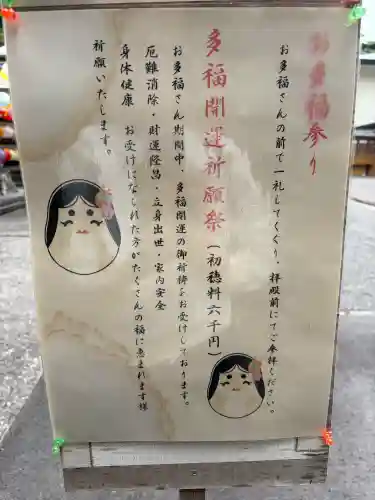 お多福参り
お多福さんの前で一礼してくぐり、拝殿前にてご参拝ください。
多福開運祈願祭（初穂料六千円）
お多福さん期間中、多福開運の御祈祷をお受けしております。
厄難消除・財運隆昌・立身出世・家内安全
身体健康　お受けになられた方がたくさんの福に恵まれます様
祈願いたします。